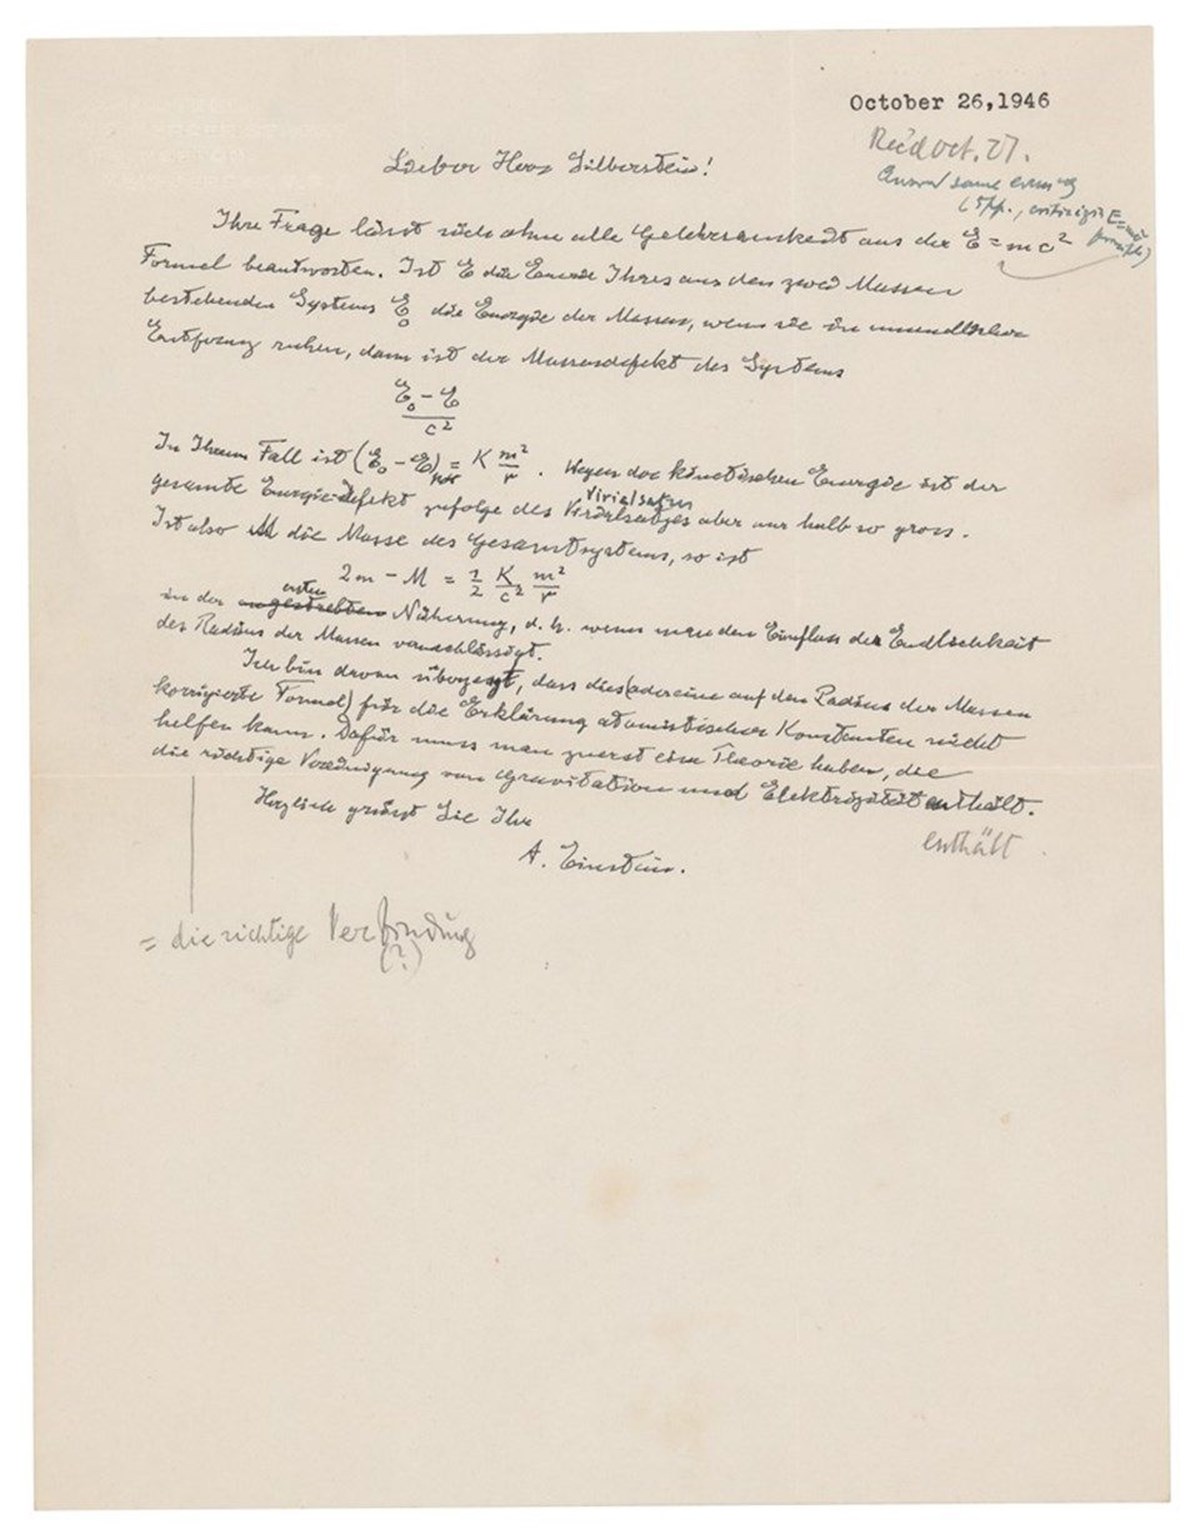 October 26, 1946
Rec'd Oct. 27.
Answ'd same evening
(5 pp., criticizing E=mc²
Lieber Herr Silberstein!
Ihre Frage lässt sich ohne alle Gelehrsamkeit aus der E = mc²
Formel beantworten. Ist E die Energie Ihres aus den zwei Massen
bestehenden Systems E₀ die Energie der Massen, wenn sie in unendlicher
Entfernung ruhen, dann ist der Massendefekt des Systems
E₀ - E
c²
In Ihrem Fall ist (E₀ - E) = K m²/r . Wegen der kinetischen Energie ist der
Virialsatzes
gesamte Energie-Defekt zufolge des Virialsatzes aber nur halb so gross.
Ist also M die Masse des Gesamtsystems, so ist
2m - M = 1/2 K/c² m²/r
ersten
in der angestrebten Näherung, d. h. wenn man den Einfluss der Endlichkeit
des Radius der Massen vernachlässigt.
Ich bin davon überzeugt, dass dies (oder eine auf den Radius der Massen
korrigierte Formel) für die Erklärung atomistischer Konstanten nicht
helfen kann. Dafür muss man zuerst eine Theorie haben, die
die richtige Vereinigung von Gravitation und Elektrizität enthält.
enthält
Herzlich grüsst Sie Ihr
A. Einstein.
= die richtige Verbindung
(?)